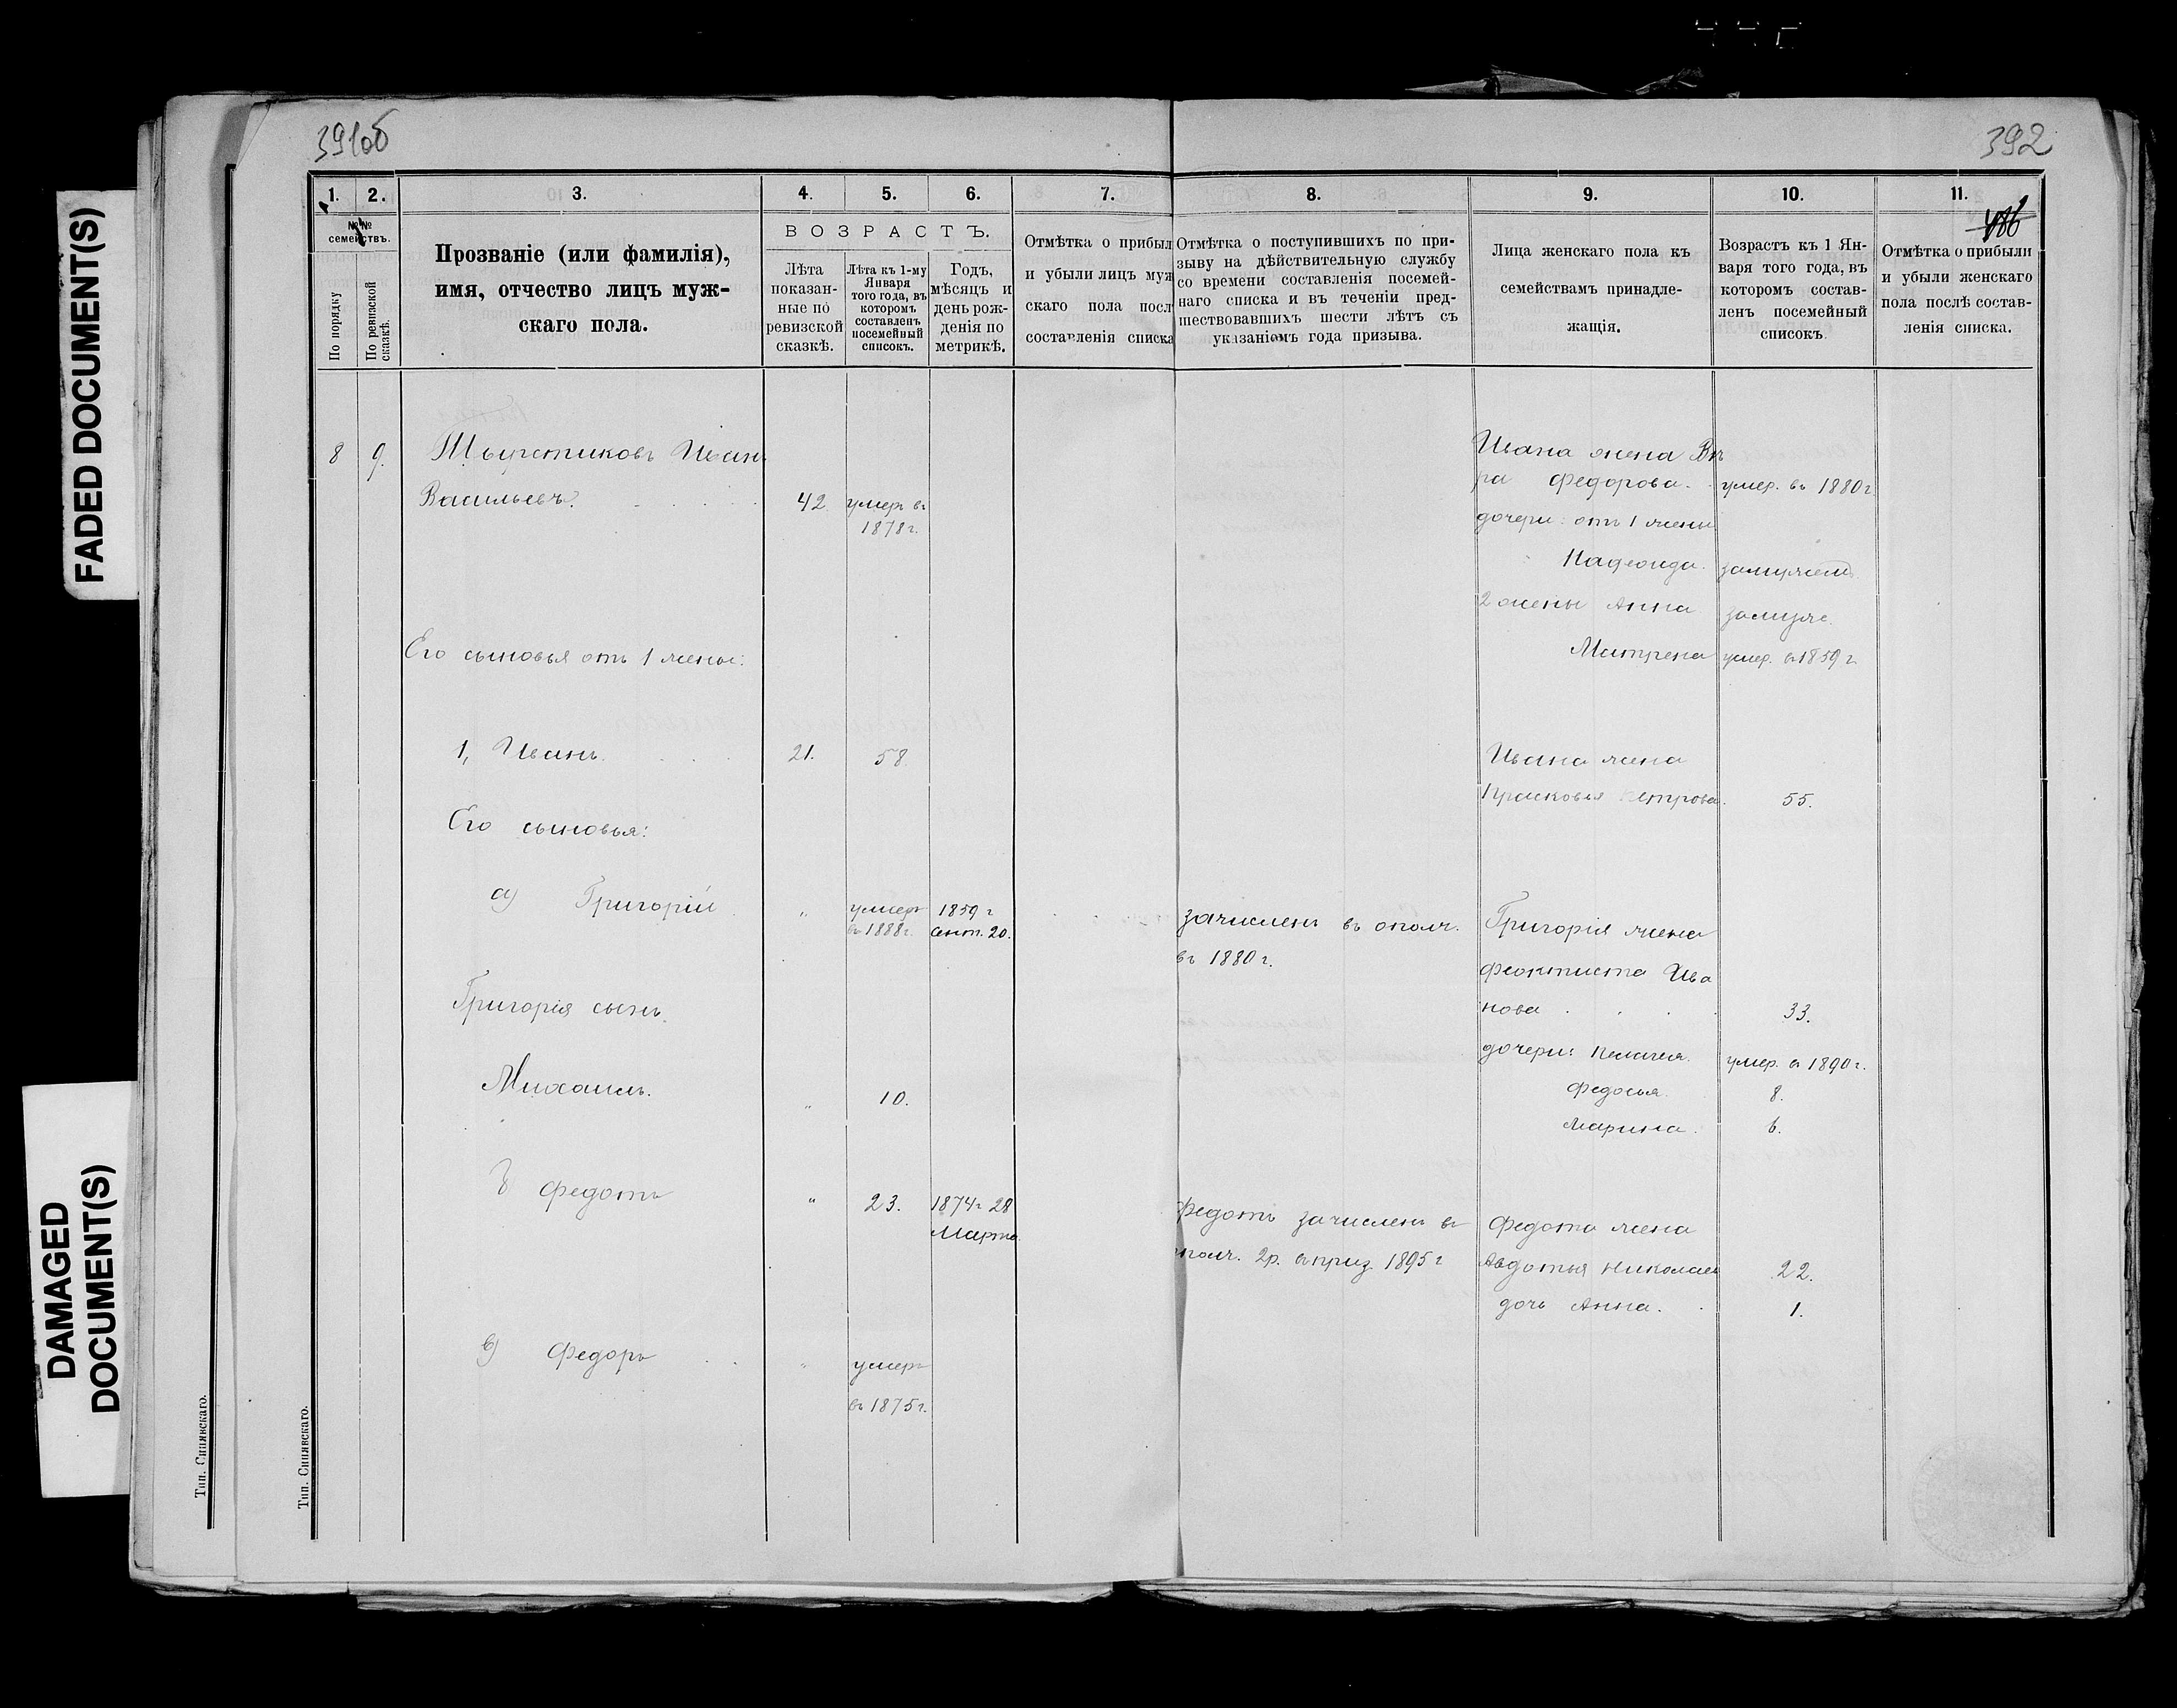 391об
392
1.
2.
3.
4.
5.
6.
7.
8.
9.
10.
11.
186
№№ семействъ.
По порядку
По ревизской сказкѣ.
Прозваніе (или фамилія),
имя, отчество лицъ муж-
скаго пола.
ВОЗРАСТЪ.
Лѣта
показан-
ные по
ревизской
сказкѣ.
Лѣта къ 1-му
Января
того года, въ
которомъ
составленъ
посемейный
списокъ.
Годъ,
мѣсяцъ и
день рож-
денія по
метрикѣ.
Отмѣтка о прибыл
и убыли лицъ муж
скаго пола посл
составленія списка
Отмѣтка о поступившихъ по при-
зыву на дѣйствительную службу
со времени составленія посемей-
наго списка и въ теченіи пред-
шествовавшихъ шести лѣтъ съ
указаніемъ года призыва.
Лица женскаго пола къ
семействамъ принадле-
жащія.
Возрастъ къ 1 Ян-
варя того года, въ
которомъ состав-
ленъ посемейный
списокъ
Отмѣтка о прибыли
и убыли женскаго
пола послѣ состав-
ленія списка.
8 9. Иванъ
Васильевъ. 42 умеръ въ
1878 г.
Его сыновья отъ 1 жены:
1, Иванъ. 21. 58
Его сыновья:
а) Григорій " умеръ 1859 г
въ 1888 г. сент. 20.
Григорія сынъ
Михаилъ. " 10.
б Федотъ " 23. 1874 г 28
Марта
в) Федоръ " умеръ
въ 1875 г.
зачисленъ въ ополч.
въ 1880 г.
Федотъ зачисленъ въ
ополч. 2р. въ приз. 1895 г
Ивана жена Вѣ
ра Федорова. умер. въ 1880 г.
дочери: отъ 1 жены
Надежда. замужемъ
2 жены Анна замуже.
Матрена умер. въ 1859 г.
Ивана жена
Прасковья Петрова. 55.
Григорія жена
Феоктиста Ива
нова 33.
дочери: Пелагея. умер. въ 1890 г.
Федосья. 8.
Марина. 6.
Федота жена
Авдотья Николаев 22.
дочь Анна. 1.
Тип. Синявскаго.
Тип. Синявскаго.
FADED DOCUMENT(S)
DAMAGED
DOCUMENT(S)